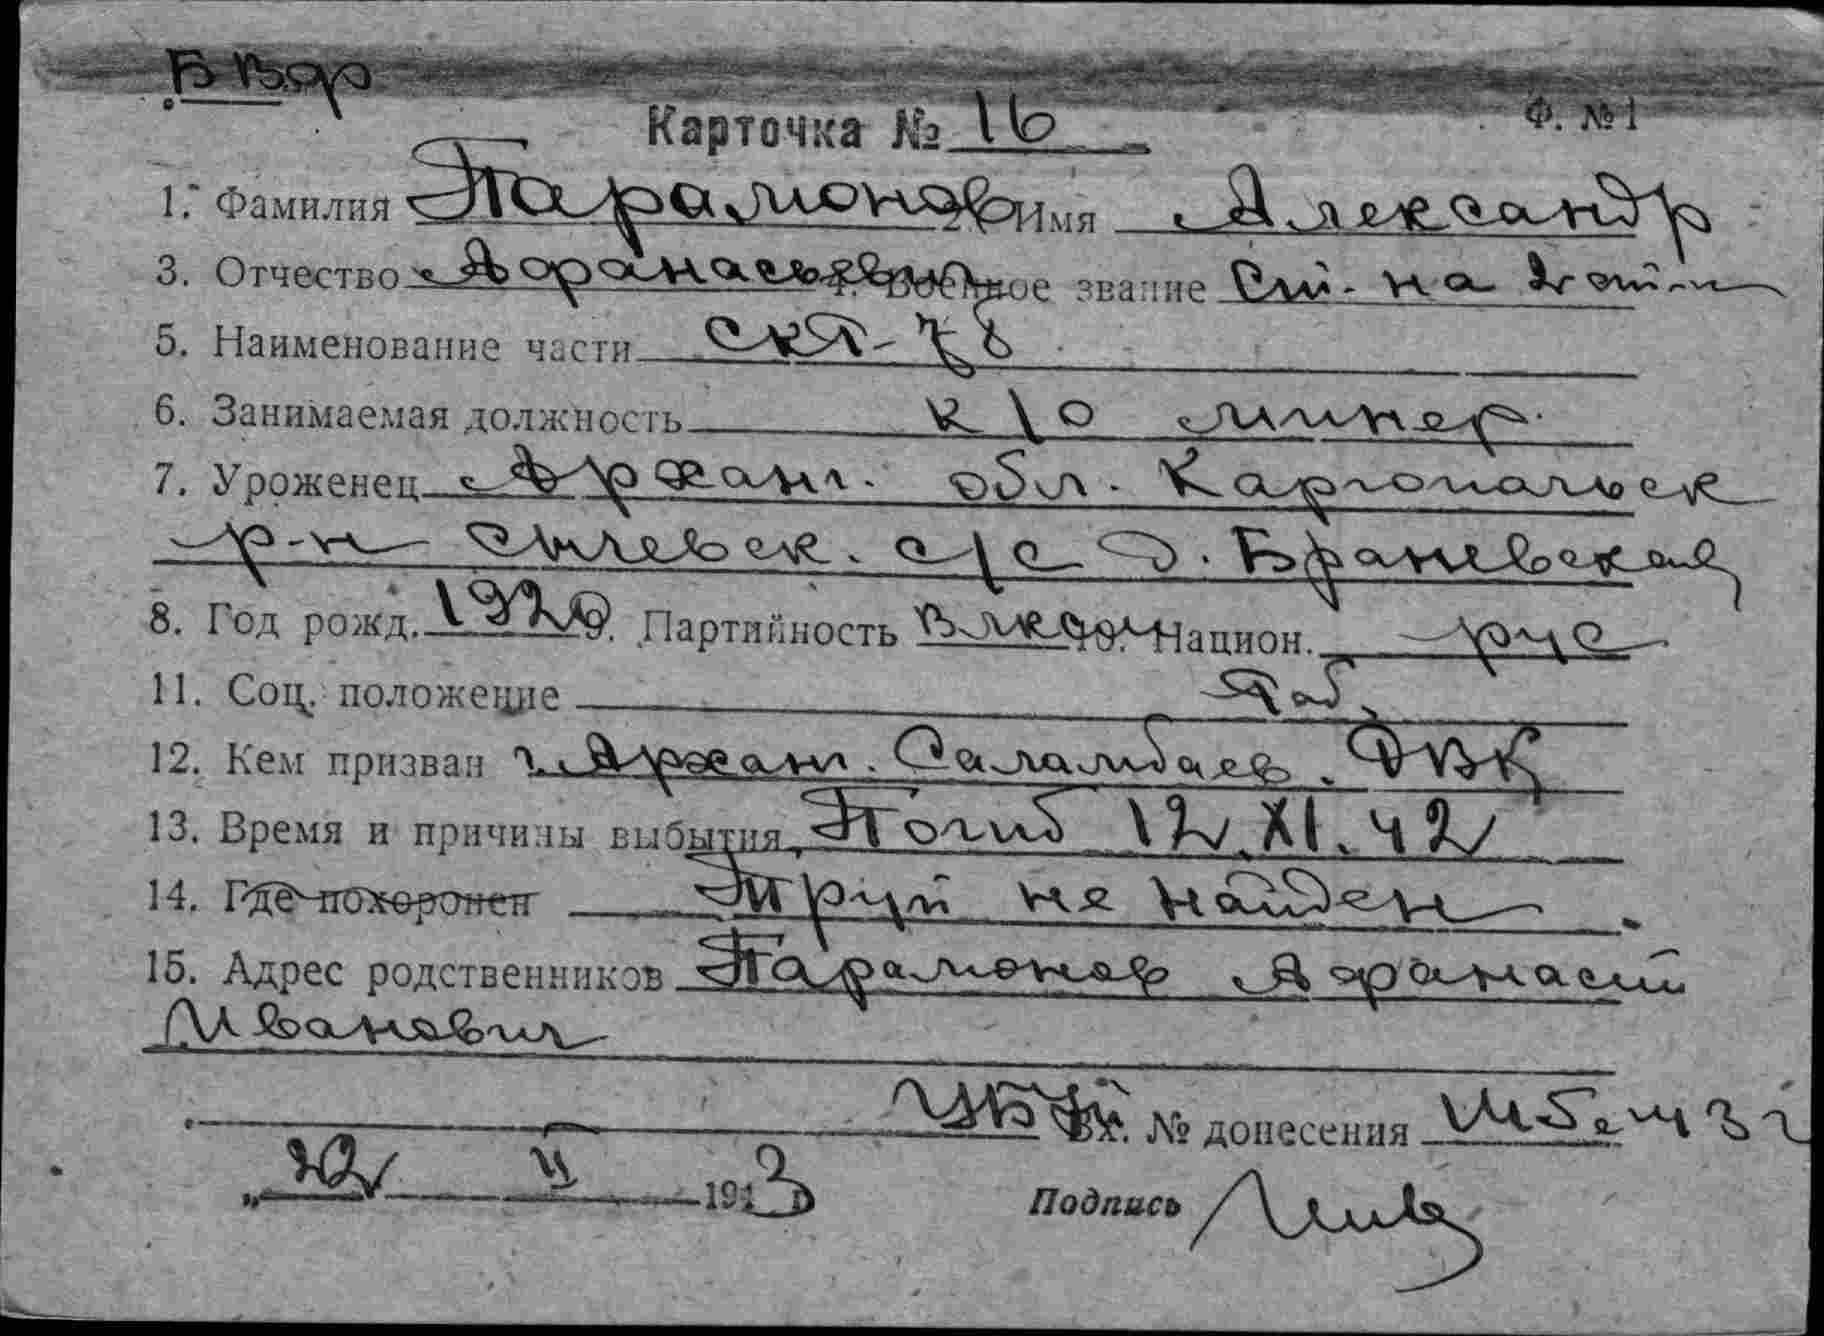 БВФ
Карточка № 16 Ф. № 1
1. Фамилия Парамонов 2. Имя Александр
3. Отчество Афанасьевич 4. Военное звание Ст. на 2 ст-и
5. Наименование части СКА-78
6. Занимаемая должность к/о минер.
7. Уроженец Арханг. обл. Каргопольск
р-н Сычевск. с/с д. Браневская
8. Год рожд. 1920 9. Партийность ВЛКСМ 10. Национ. рус
11. Соц. положение Раб.
12. Кем призван г. Арханг. Саламбаев. РВК
13. Время и причины выбытия Погиб 12.XI.42
14. Где похоронен Труп не найден.
15. Адрес родственников Парамонов Афанасий
Иванович
Вх. № донесения
„22 II 1943 Подпись